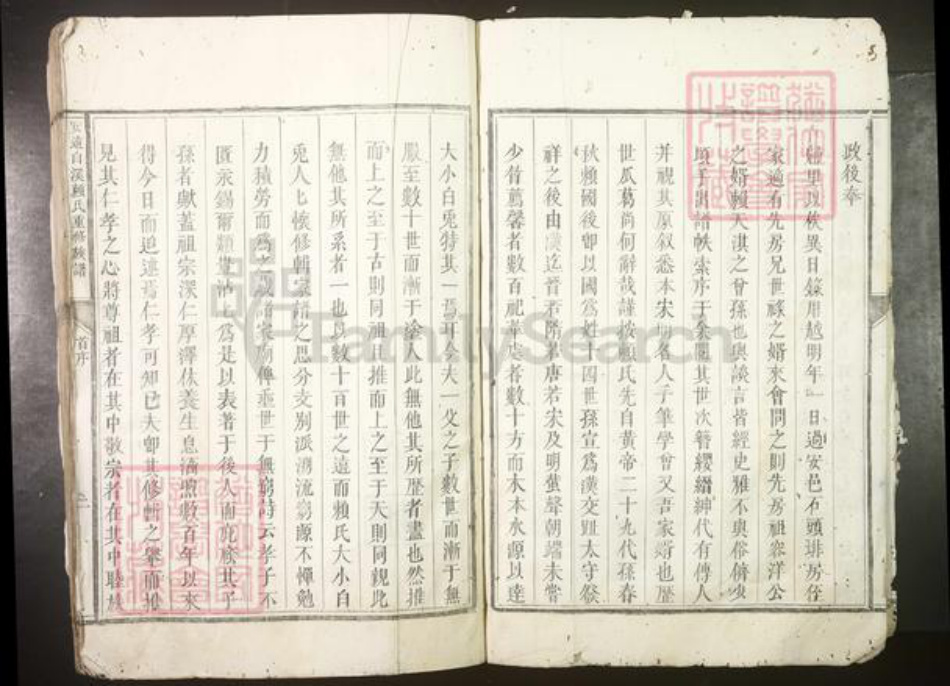 政後奉
歸里以俟異日錄用越明年一日過安邑石頭排房侄
家適有先房兄世祿之婿來會問之則先房祖容洋公
之婿賴天淇之曾孫也與談言皆經史雅不與俗儕少
頃手出譜帙索序于余閱其世次簪纓縉紳代有傳人
并視其原叙悉本宋明名人手筆學曾又吾家婿也歷
世瓜葛尚何辭哉謹按賴氏先自黃帝二十九代孫春
秋賴國後卽以國爲姓十四世孫宣爲漢交趾太守發
祥之後由漢迄晉若隋若唐若宋及明蜚聲朝端未嘗
少替薦馨者數百祀華處者數十方而木本水源以達
大小白兎特其一焉耳今夫一父之子數世而漸于無
服至數十世而漸于塗人此無他其所歷者盡也然推
而上之至于古則同祖且推而上之至于天則同親此
無他其所系者一也以數十百世之遠而賴氏大小白
兎人匕懷修輯家譜之思分支別派溯流窮源不憚勉
力積勞而爲之成譜家廟俾垂世于無窮詩云孝子不
匱永錫爾類豈沾匕爲是以表著于後人而庇庥其子
孫者猷蓋祖宗深仁厚澤休養生息涵煦數百年以來
得今日而追遠焉仁孝可知已大卽其修斬之舉而推
見其仁孝之心將尊祖者在其中敬宗者在其中睦族
安遠白溪賴氏重修族譜
首序
二
FamilySearch